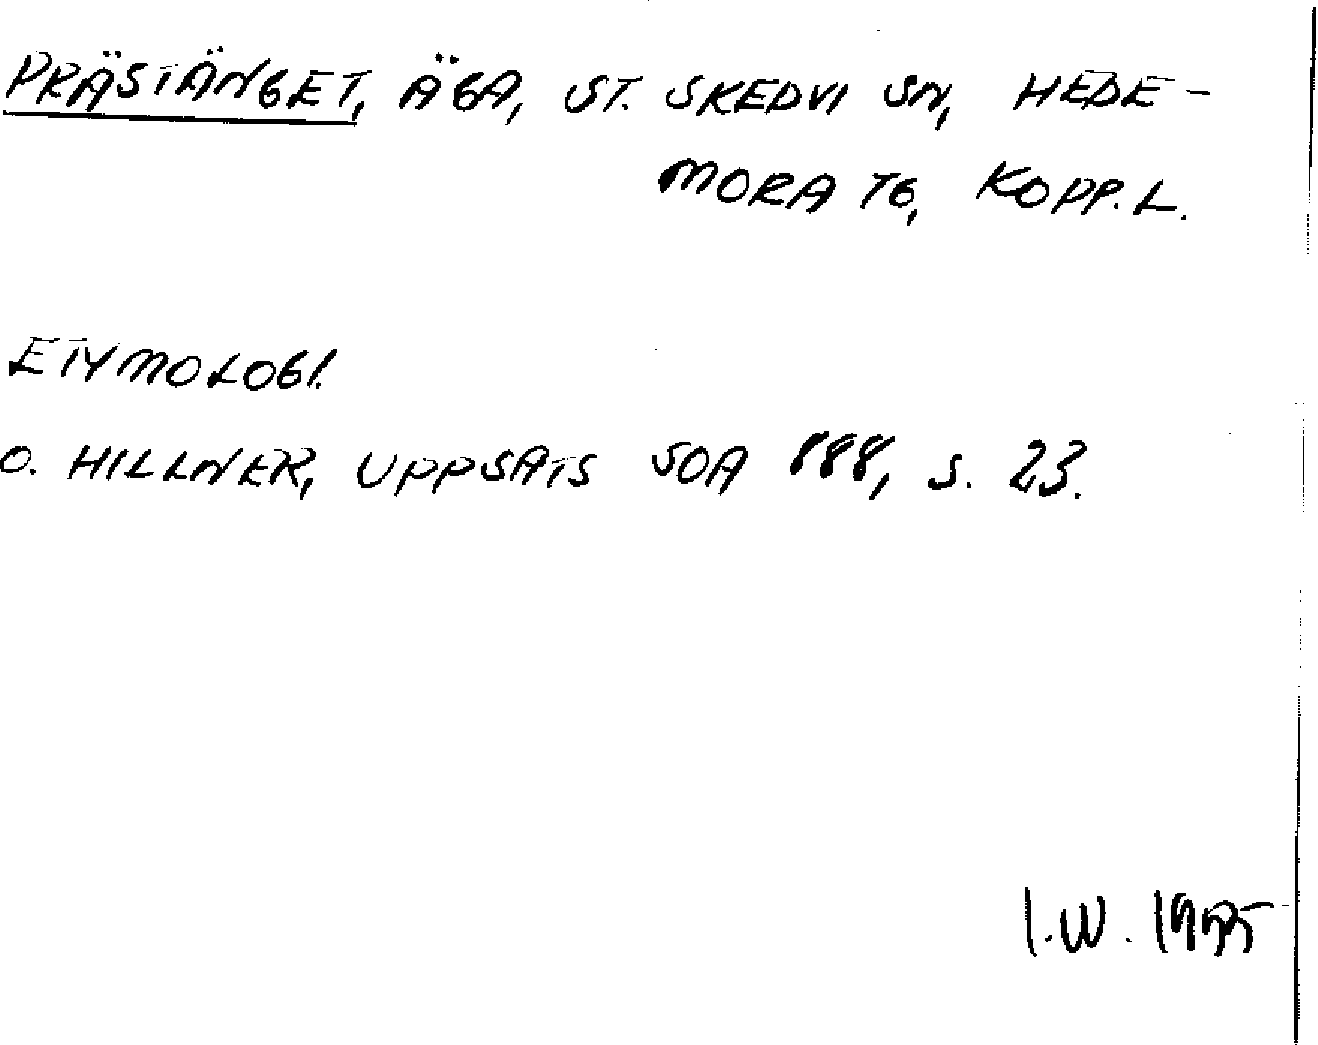 PRÄSTÄNGET, ÄGA, ST. SKEDVI SN, HEDE-
MORA TG, KOPP. L.
ETYMOLOGI.
O. HILLNER, UPPSATS SOA 888, S. 23.
I.W. 1975